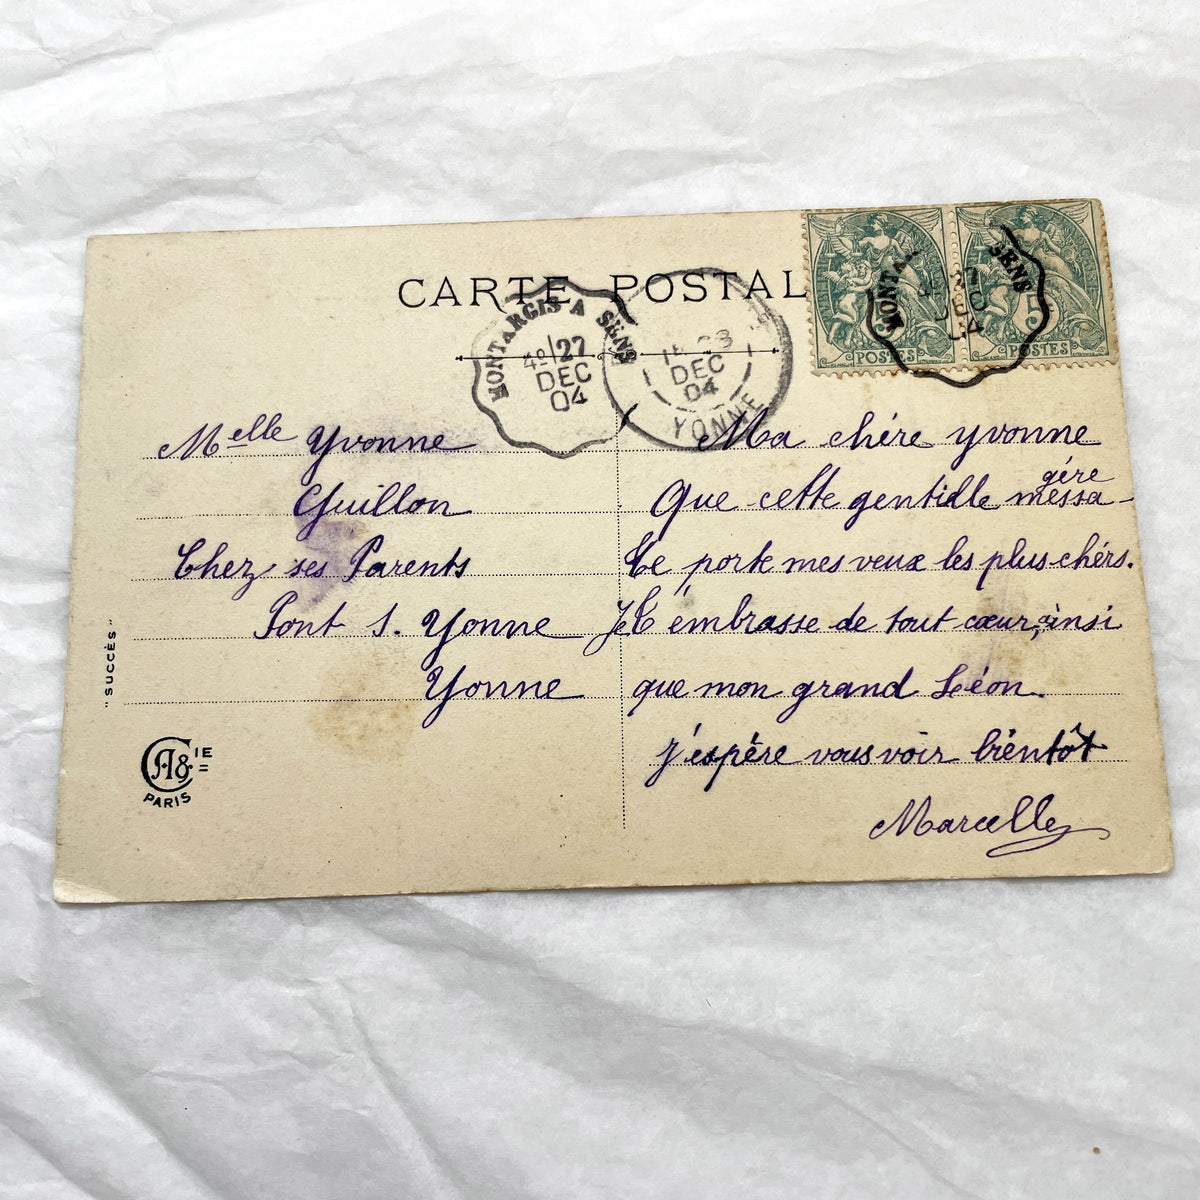 CARTE POSTAL
MONTARGIS A SENS
4º 27
DEC
04
DEC
04
YONNE
MONTA
SENS
27
DEC
04
5
POSTES
POSTES
Melle Yvonne
Guillon
Chez ses Parents
Pont s. Yonne
Yonne
Ma chére yvonne
Que cette gentille messa-
gére
te porte mes veux les plus chérs.
Je t émbrasse de tout cœur, ainsi
que mon grand Léon.
j'éspére vous voir bientôt
Marcelle
"SUCCÈS"
CA & IE
PARIS